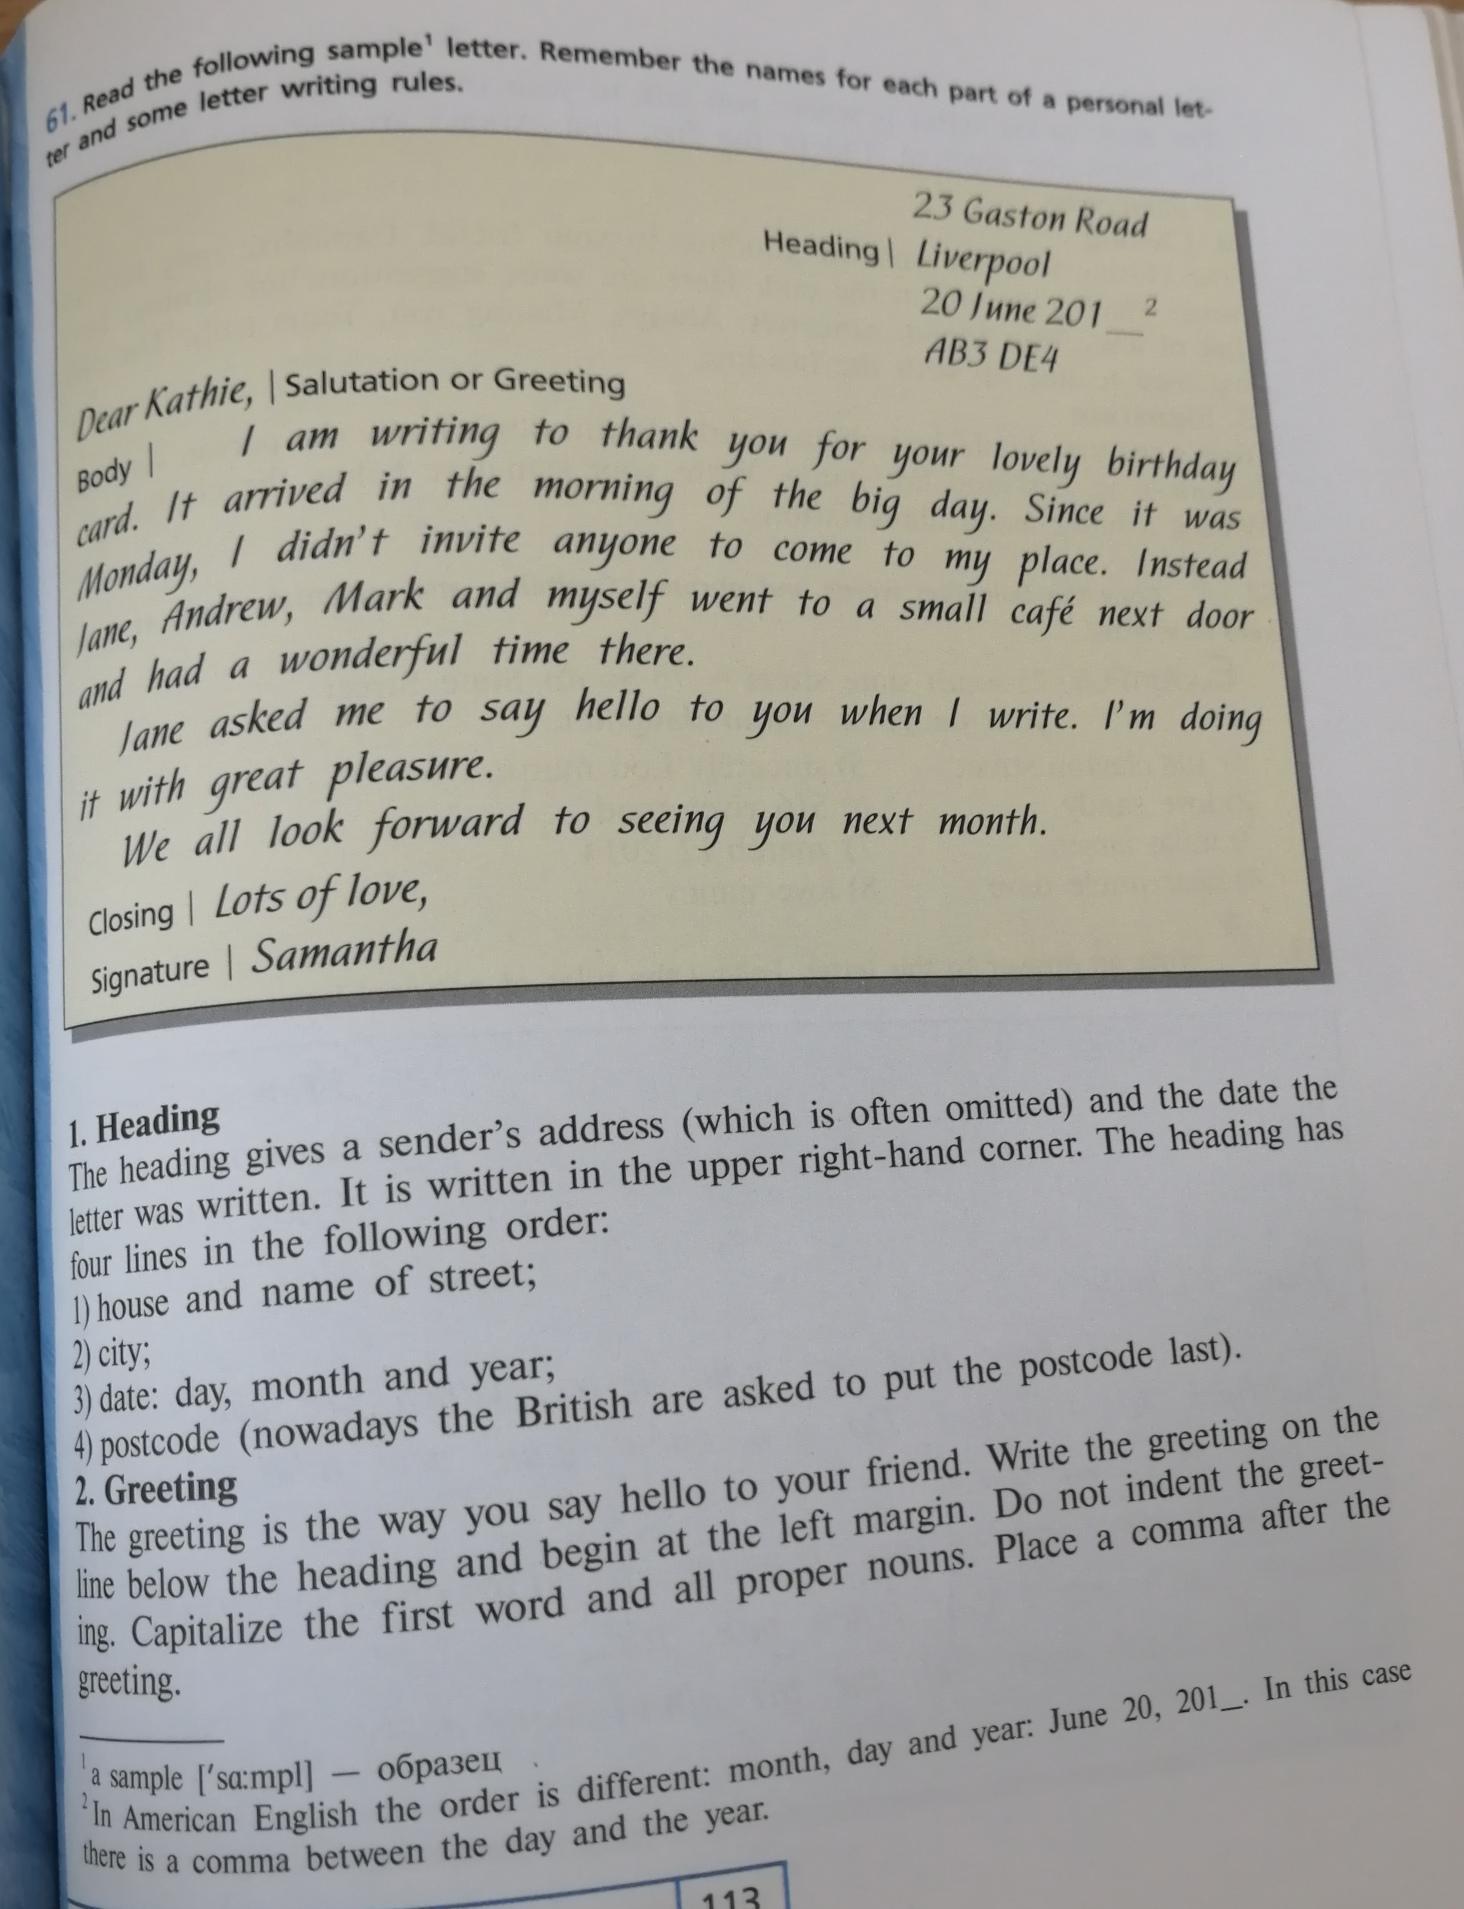 61. Read the following sample¹ letter. Remember the names for each part of a personal let-
ter and some letter writing rules.
23 Gaston Road
Heading | Liverpool
20 June 201__²
AB3 DE4
Dear Kathie, | Salutation or Greeting
Body | I am writing to thank you for your lovely birthday
card. It arrived in the morning of the big day. Since it was
Monday, I didn't invite anyone to come to my place. Instead
Jane, Andrew, Mark and myself went to a small café next door
and had a wonderful time there.
Jane asked me to say hello to you when I write. I'm doing
it with great pleasure.
We all look forward to seeing you next month.
Closing | Lots of love,
Signature | Samantha
1. Heading
The heading gives a sender's address (which is often omitted) and the date the
letter was written. It is written in the upper right-hand corner. The heading has
four lines in the following order:
1) house and name of street;
2) city;
3) date: day, month and year;
4) postcode (nowadays the British are asked to put the postcode last).
2. Greeting
The greeting is the way you say hello to your friend. Write the greeting on the
line below the heading and begin at the left margin. Do not indent the greet-
ing. Capitalize the first word and all proper nouns. Place a comma after the
greeting.
¹ a sample ['sɑ:mpl] — образец
² In American English the order is different: month, day and year: June 20, 201_. In this case
there is a comma between the day and the year.
113